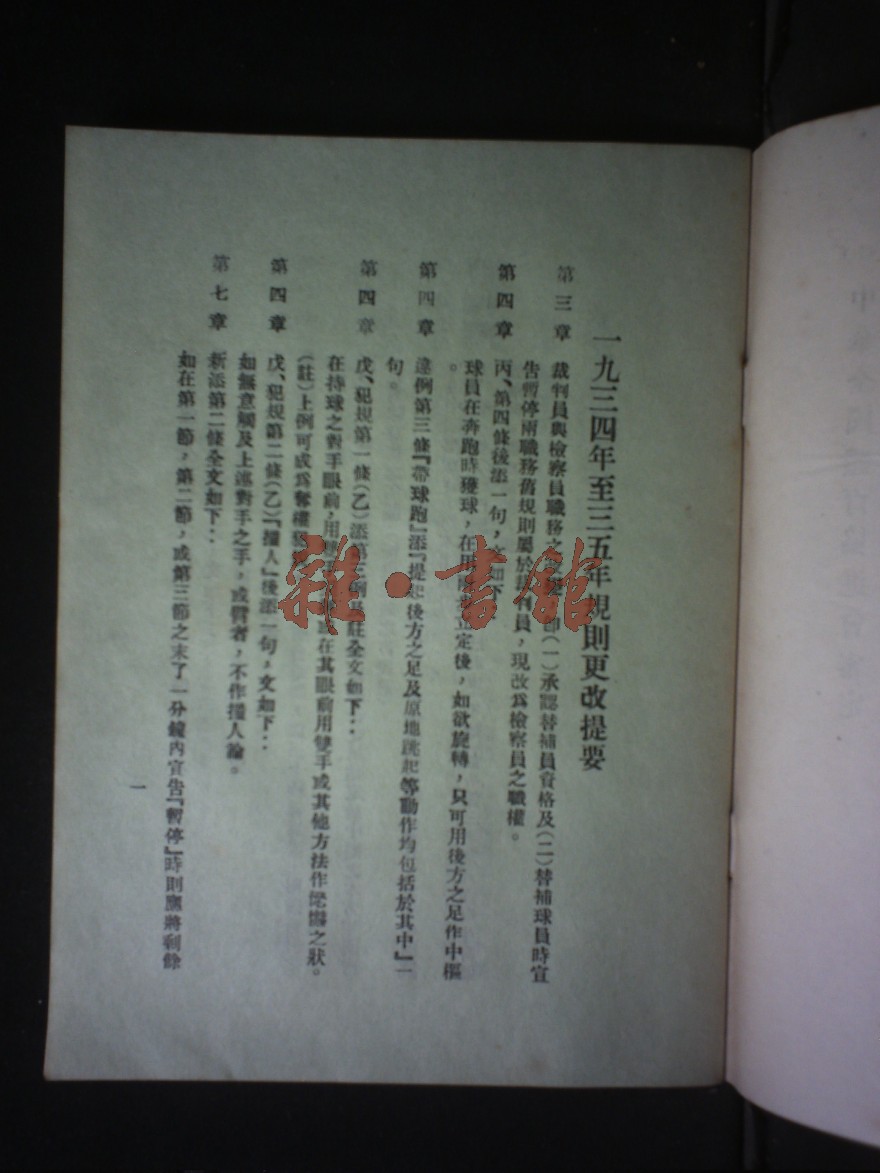 一九三四年至三五年規則更改提要
第三章 裁判員與檢察員職務之 即(一)承認替補員資格及(二)替補球員時宣
告暫停兩職務舊規則屬於裁判員，現改爲檢察員之職權。
第四章 丙、第四條後添一句，文如下
球員在奔跑時獲球，在用 立定後，如欲旋轉，只可用後方之足作中樞
。
第四章 違例第三條『帶球跑』添『提起後方之足及原地跳起等動作均包括於其中』一
句。
第四章 戊、犯規第一條(乙)添第三例及註全文如下：
在持球之對手眼前，用雙手 或在其眼前用雙手或其他方法作恐嚇之狀。
(註)上例可成爲奪權犯
第四章 戊、犯規第二條(乙)『撞人』後添一句，文如下：
如無意觸及上述對手之手，或臂者，不作撞人論。
第七章 新添第二條全文如下：
如在第一節，第二節，或第三節之末了一分鐘內宣告『暫停』時則應將剩餘
一
雜·書館